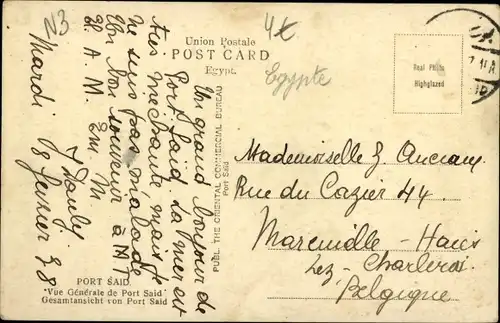 N3
4x
Union Postale
POST CARD
Egypt.
Egypte
Real Photo
Highglazed
Un grand bonjour de
Port Said. La mer est
très méchante mais je
ne suis pas malade
Un bon souvenir à M T
et A. M. Em. M
J Dauby
Mardi. 18 Janvier 38
PUBL. THE ORIENTAL COMMERCIAL BUREAU
Port Said
Mademoiselle J.
Rue du Cazier 44
Marcinelle - Haies
Lez - Charleroi
Belgique
PORT SAID
"Vue Générale de Port Said"
Gesamtansicht von Port Said